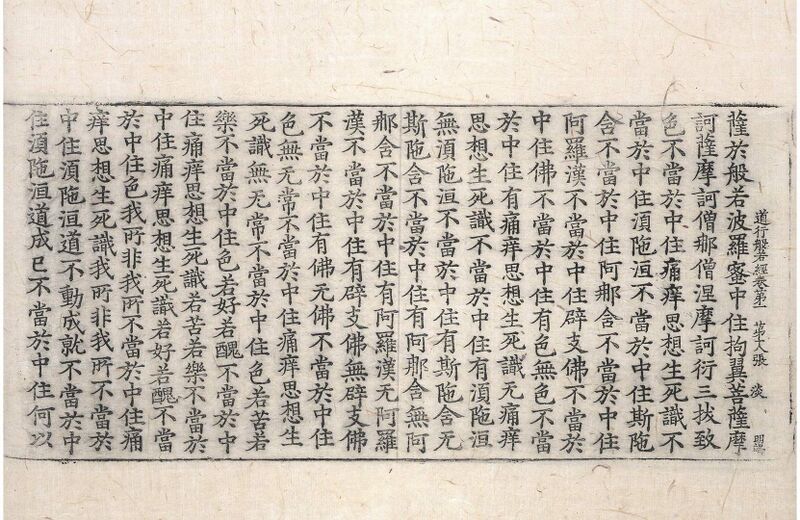 道行般若經卷第一 第十八張 淡
薩於般若波羅蜜中住拘翼菩薩摩
訶薩摩訶僧那僧涅摩訶衍三拔致
色不當於中住痛痒思想生死識不
當於中住湏陁洹不當於中住斯陁
含不當於中住阿那含不當於中住
阿羅漢不當於中住辟支佛不當於
中住佛不當於中住有色無色不當
於中住有痛痒思想生死識无痛痒
思想生死識不當於中住有湏陁洹
無湏陁洹不當於中住有斯陁含无
斯陁含不當於中住有阿那含無阿
那含不當於中住有阿羅漢无阿羅
漢不當於中住有辟支佛無辟支佛
不當於中住有佛无佛不當於中住
色無无常不當於中住痛痒思想生
死識無无常不當於中住色若苦若
樂不當於中住色若好若醜不當於中
住痛痒思想生死識若苦若樂不當於
中住痛痒思想生死識若好若醜不當
於中住色我所非我所不當於中住痛
痒思想生死識我所非我所不當於
中住湏陁洹道不動成就不當於中
住湏陁洹道成已不當於中住何以